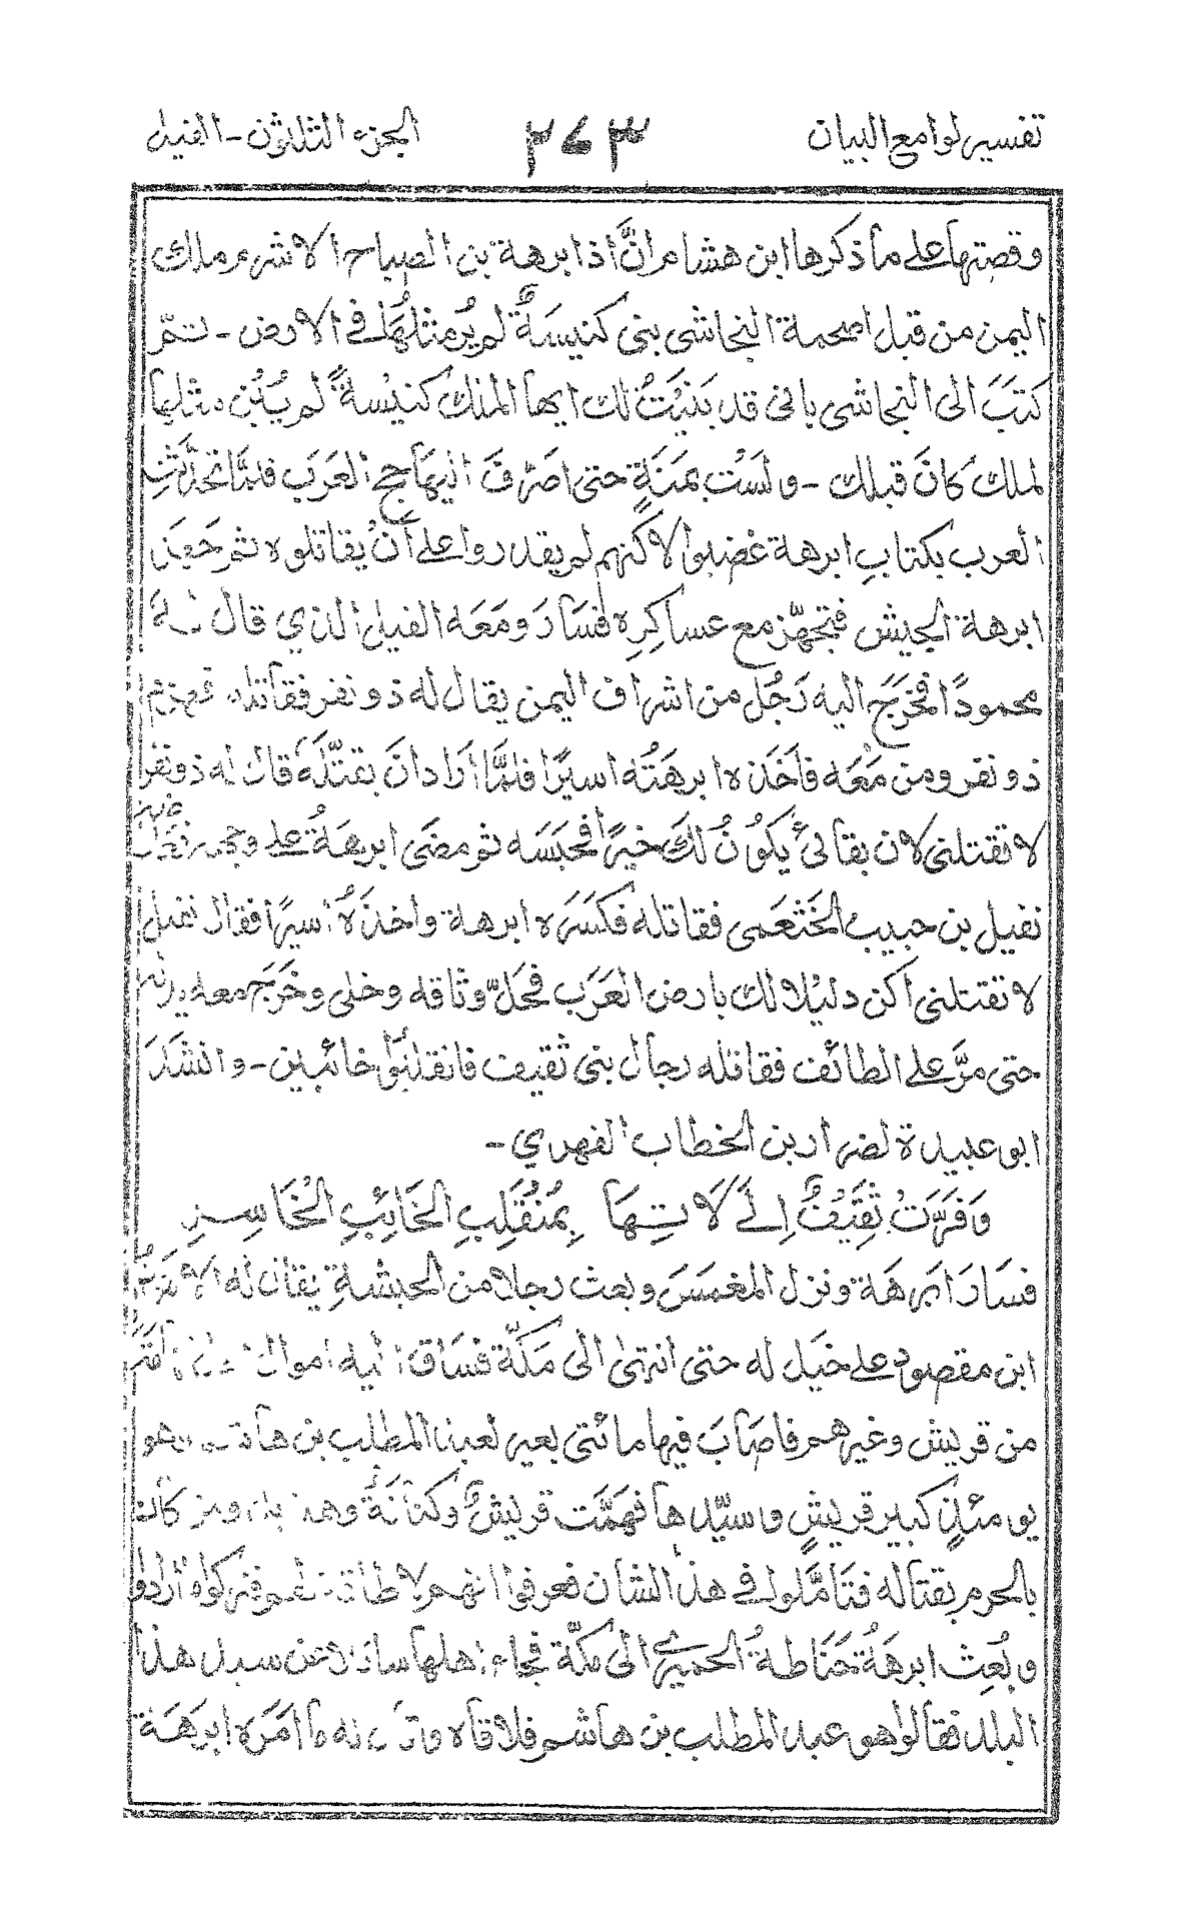 تفسير لوامع البيان ٢٧٣ الجزء الثلثون - الفيل
وقصتها على ما ذكرها ابن هشام انَّ اذا ابرهة بن الصباح الاشرم ملك
اليمن من قبل اصحمة النجاشى بنى كنيسَةً لم يُر مثلُها في الارض - ثمّ
كتَبَ الى النجاشى بانى قد بَنَيْتُ لك ايها الملك كنيْسةً لم يُبْن مثلها
لملك كانَ قبلك - ولسْت بمنَتَهٍ حتى اصرفَ اليها حج العَرَب فلمّا تحدَّثت
العرب بكتابِ ابرهة غضبوا لاكنهم لم يقدروا على أنْ يقاتلوه ثم جَهَز
ابرهة الجيش فتجهّز مع عساكرِه فسَارَ ومَعَه الفيل الذي قال له
محمودًا فخرَجَ اليه رَجُل من اشراف اليمن يقال له ذو نفر فقاتله فهزم
ذو نفر ومن مَعْه فاَخَذه ابرهَتُه اسيرًا فلمَّا اَرَادَ انَ يقتلَه قال له ذو نفر
لا تقتلنى لان بقائى يكَوُنُ لكَ خيرًا فحبَسَه ثم مضَى ابرهَةُ على وجهه
نفيل بن حبيب الخَثْعَمى فقاتله فكسَرَه ابرهة واخذَهُ اسيرًا فقال نفيل
لا تقتلنى أكن دليْلا لك بارض العَرَب فحَلّ وثاقه وخلى وخَرَج معه
حتى مرَّ على الطائف فقاتله رجال بنى ثقيف فانقلبُوا خائبين - وانشدَ
ابو عبيدة لضرار بن الخطاب الفهري -
وَفَرَّتْ ثَقِيْفٌ اِلَے لَاتِهَا بِمُنْقَلِبِ الخَائِبِ الْخَاسِرِ
فسَارَ ابَرهَة ونزل المغمسَ وبعث رجلا من الحبشةِ يقال له
ابن مقصود على خيَل له حتى انتهىٰ الى مَكّة فسَاق اليه اموال
من قريش وغيرهم فاصَابَ فيها مائتى بعير لعبد المطلب بن هاشم وهو
يومئذٍ كبير قريشٍ وسيّدها فهَمَّت قريشٌ وكنانَةُ وهذيل ومن كان
بالحرم بقتاله فتامَّلوا في هذا الشان فعرفوا انهم لا طاقة لهم فتركوا
وبُعِث ابرهَةُ حَنَاطةُ الحميرى الىٰ مكّة فجاء اهلها سائلا عن سيد هذا
البلد فقالوا هو عبد المطلب بن هاشم فلاقاه وقال له ما امَرَه ابرهَة